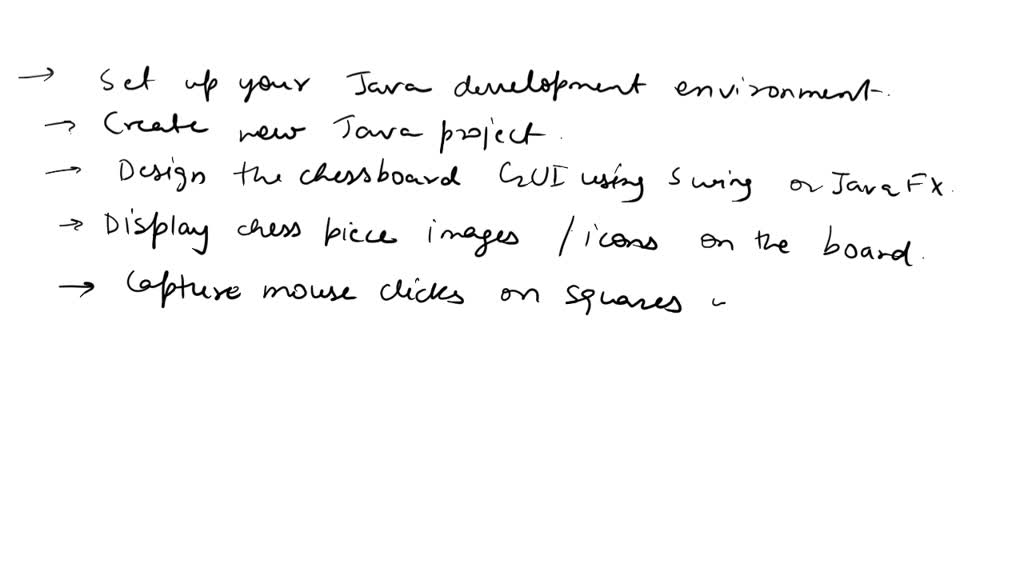 → Set up your Java development environment.
→ Create new Java project.
→ Design the chessboard GUI using Swing or JavaFX.
→ Display chess piece images / icons on the board.
→ Capture mouse clicks on squares